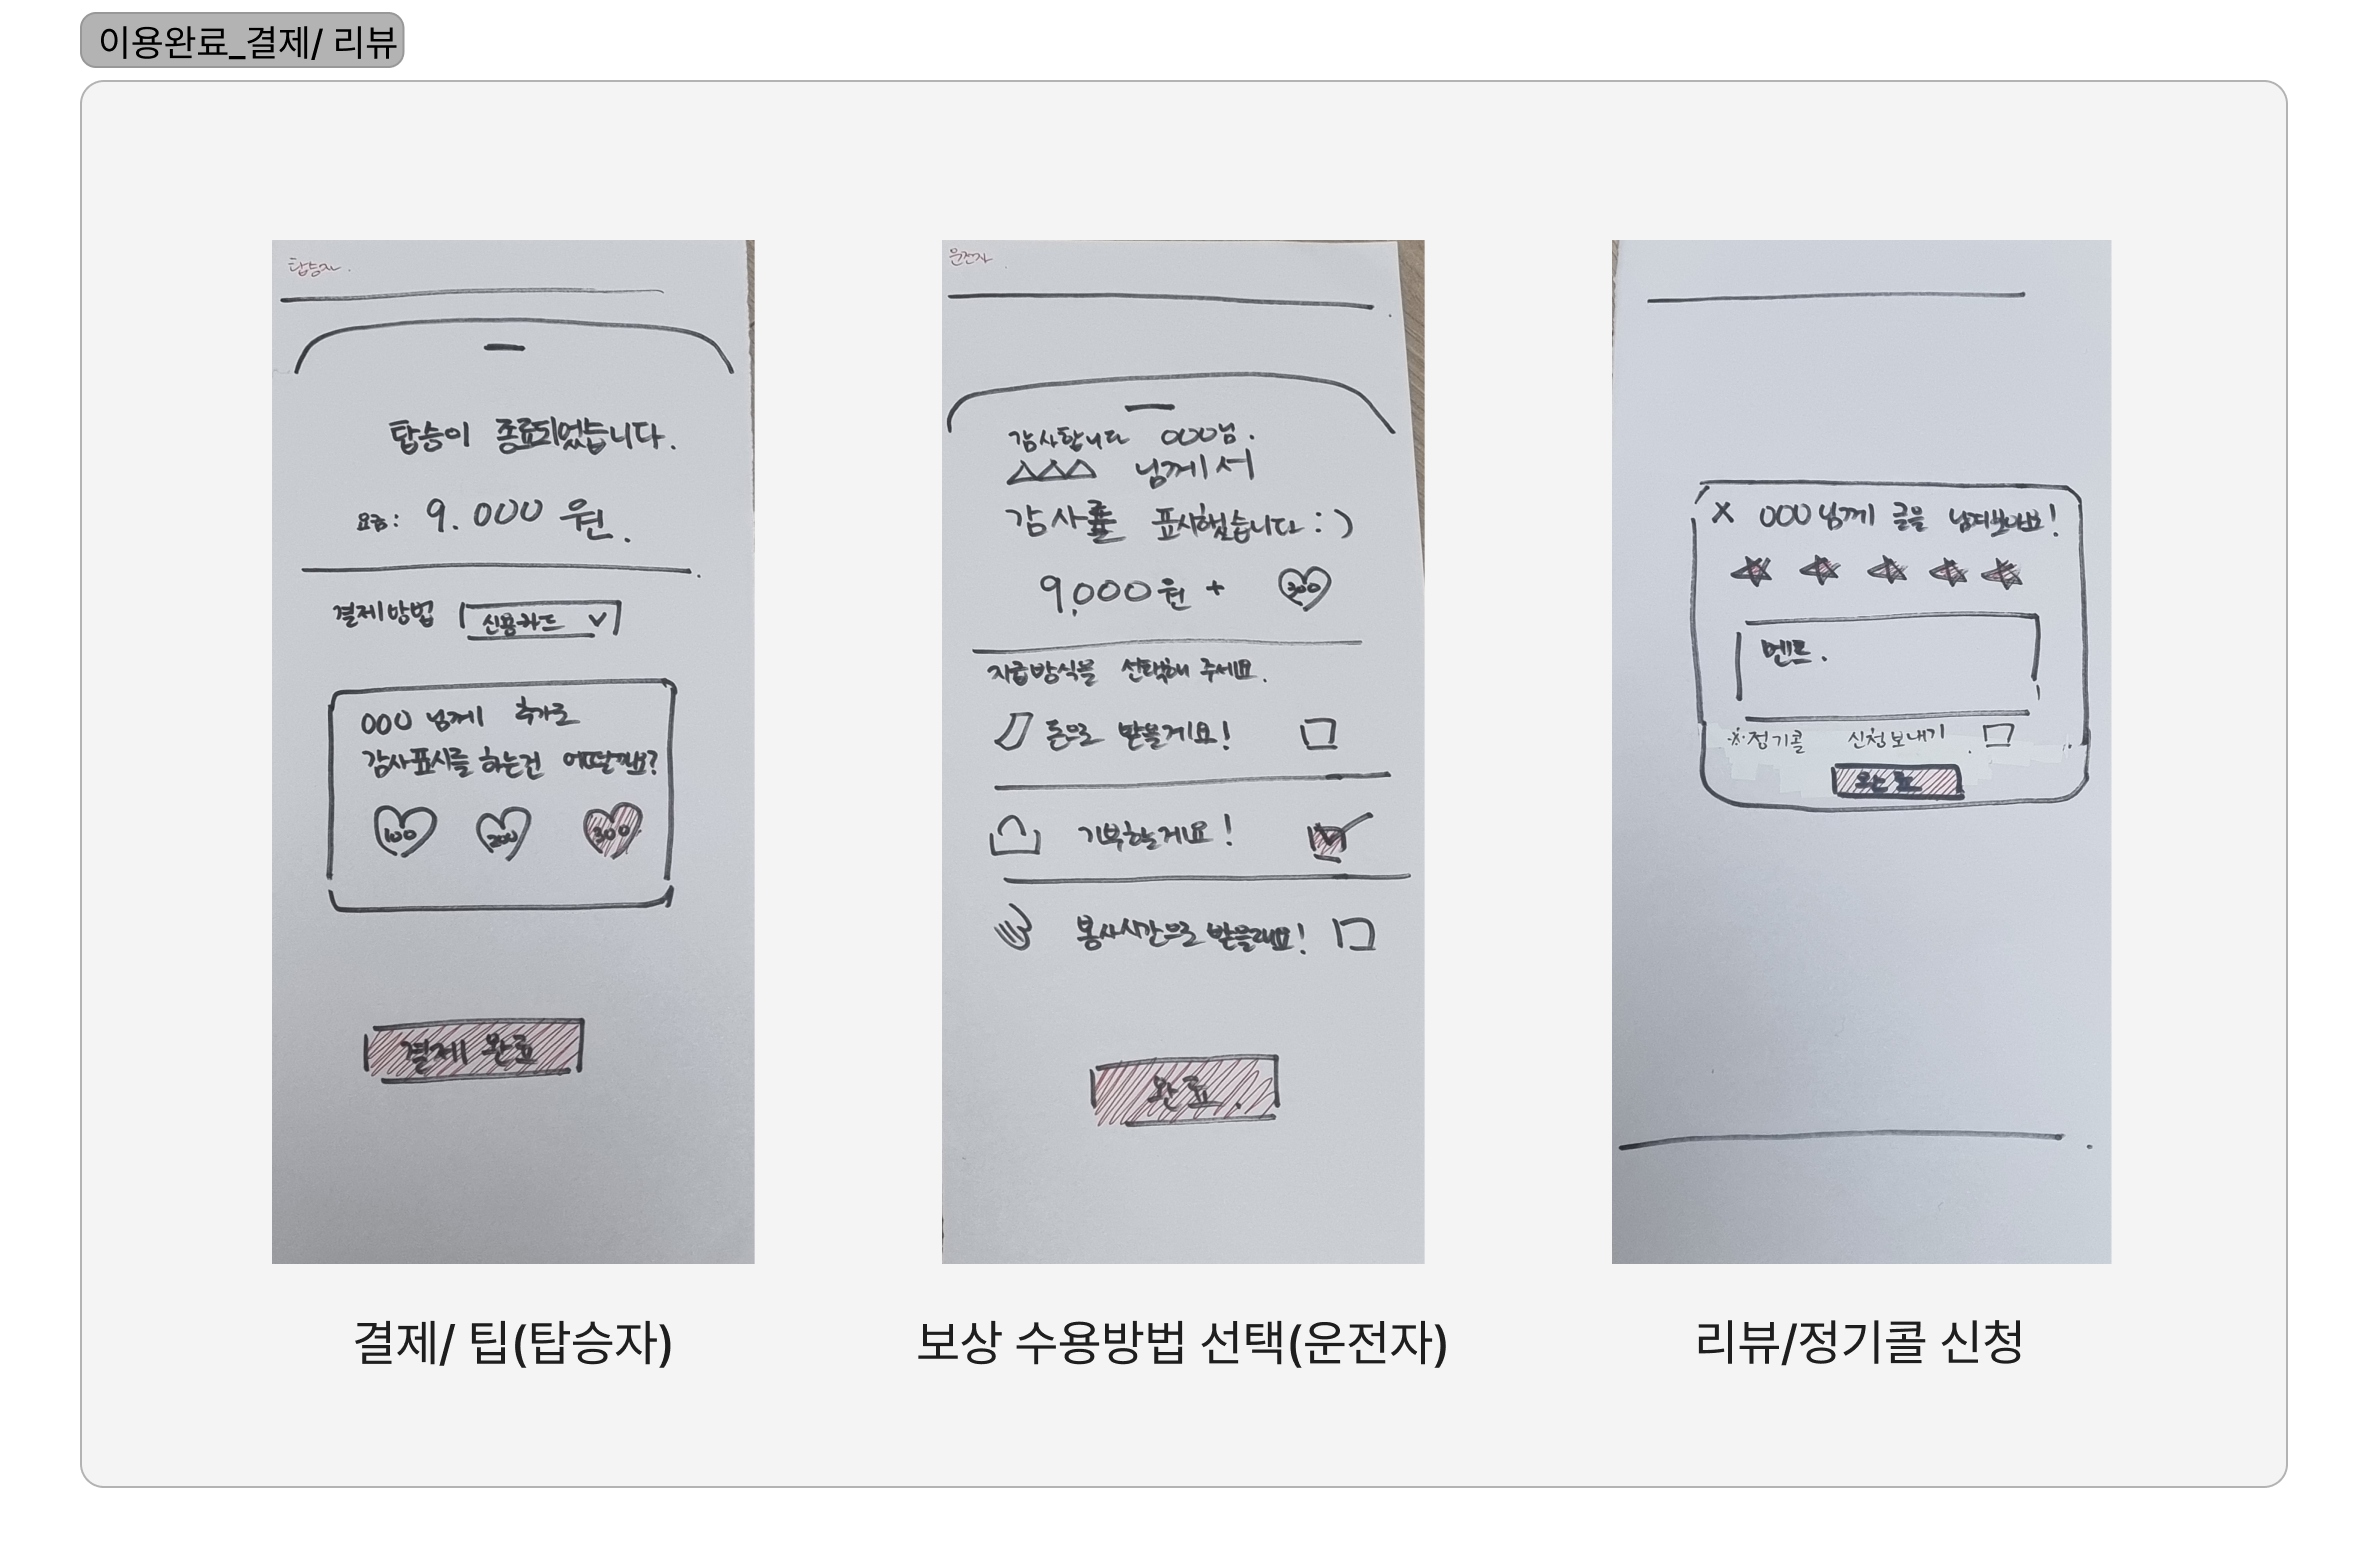 이용완료_결제/ 리뷰
탑승자.
탑승이 종료되었습니다.
요금: 9.000 원.
결제방법 신용카드
000 님께 추가로
감사표시를 하는건 어떨까요?
100 200 300
결제 완료
결제/ 팁(탑승자)
운전자
감사합니다 000님.
△△△ 님께서
감사를 표시했습니다 : )
9,000원 + 300
지급방식을 선택해 주세요.
돈으로 받을게요!
기부할게요!
봉사시간으로 받을래요!
완료.
보상 수용방법 선택(운전자)
X 000님께 글을 남겨보아요!
멘트.
※정기콜 신청보내기.
완료
리뷰/정기콜 신청